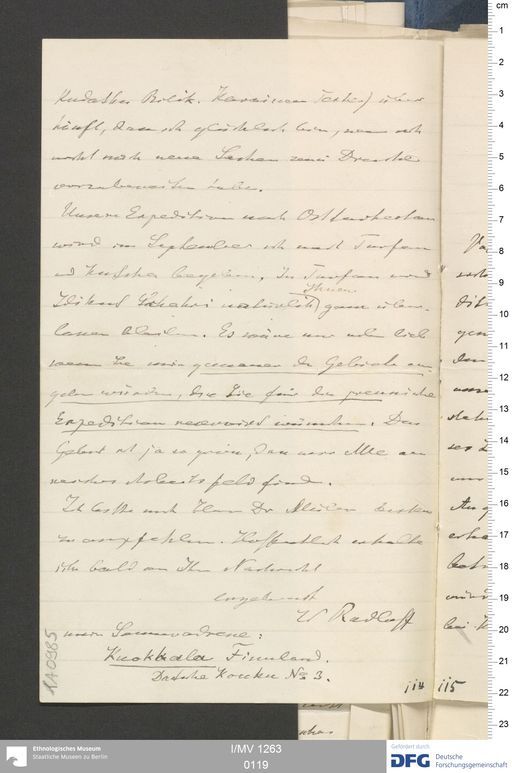 Kudatku Bilik.
häuft, dass ich glücklich bin, wenn ich
nicht noch neue Sachen zum Drucke
vorzubereiten habe.
Unsere Expedition nach Ostturkestan
wird im September sich nach Turfan
und Kutscha begeben. In Turfan wird
Ihnen
Idikut Schehri natürlich ganz über-
lassen bleiben. Es wäre mir sehr lieb
wenn Sie mir genauer die Gebiete an-
geben würden, die Sie für die preussische
Expedition reservirt wünschen. Das
Gebiet ist ja so gross, dass wir Alle ein
Arbeitsfeld finden.
Ich bitte mich Herrn Dr Müller bestens
zu empfehlen. Hoffentlich erhalte
ich bald von Ihnen Nachricht
ergebenst
W Radloff
meine Sommeradresse:
Kuokkala Finnland.
Datsche No 3.
114 115
1A0985
cm
1
2
3
4
5
6
7
8
9
10
11
12
13
14
15
16
17
18
19
20
21
22
23
Ethnologisches Museum
Staatliche Museen zu Berlin
I/MV 1263
0119
Gefördert durch
DFG Deutsche
Forschungsgemeinschaft